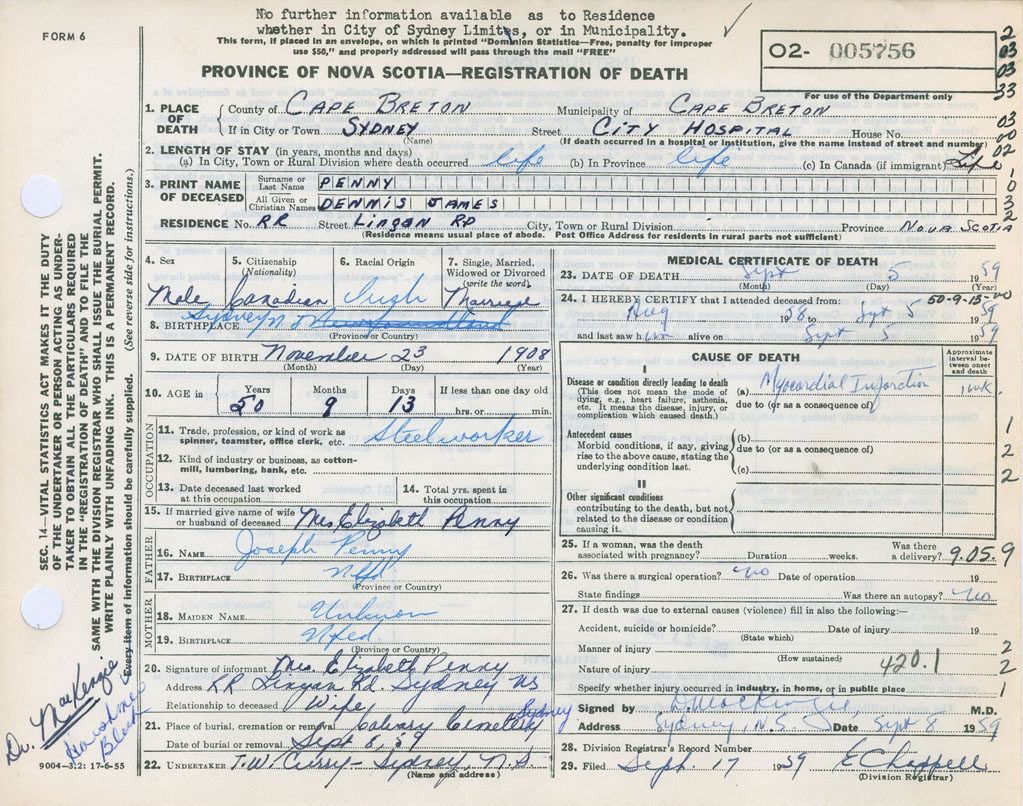 No further information available as to Residence
whether in City of Sydney Limits, or in Municipality.
FORM 6
This form, if placed in an envelope, on which is printed "Dominion Statistics—Free, penalty for improper
use $50," and properly addressed will pass through the mail "FREE"
PROVINCE OF NOVA SCOTIA—REGISTRATION OF DEATH
O2- 005756
For use of the Department only
2
03
03
33
1. PLACE OF DEATH
County of CAPE BRETON Municipality of CAPE BRETON
If in City or Town SYDNEY Street CITY HOSPITAL House No.
(Name) (If death occurred in a hospital or institution, give the name instead of street and number)
03
00
02
2. LENGTH OF STAY (in years, months and days)
(a) In City, Town or Rural Division where death occurred life (b) In Province life (c) In Canada (if immigrant) Life
3. PRINT NAME OF DECEASED
Surname or Last Name PENNY
All Given or Christian Names DENNIS JAMES
1
0
3
2
RESIDENCE No. RR Street Lingan RD City, Town or Rural Division Province NOVA SCOTIA
(Residence means usual place of abode. Post Office Address for residents in rural parts not sufficient)
4. Sex Male
5. Citizenship (Nationality) Canadian
6. Racial Origin
7. Single, Married, Widowed or Divorced (write the word) Married
8. BIRTHPLACE Sydney N S Newfoundland
(Province or Country)
9. DATE OF BIRTH November 23 1908
(Month) (Day) (Year)
10. AGE in Years 50 Months 9 Days 13 If less than one day old hrs. or min.
OCCUPATION
11. Trade, profession, or kind of work as spinner, teamster, office clerk, etc. Steelworker
12. Kind of industry or business, as cotton-mill, lumbering, bank, etc.
13. Date deceased last worked at this occupation
14. Total yrs. spent in this occupation
15. If married give name of wife or husband of deceased Mrs Elizabeth Penny
FATHER
16. NAME Joseph Penny
17. BIRTHPLACE Nfld
(Province or Country)
MOTHER
18. MAIDEN NAME Unknown
19. BIRTHPLACE Nfld
(Province or Country)
20. Signature of informant Mrs. Elizabeth Penny
Address RR Lingan Rd. Sydney NS
Relationship to deceased Wife
21. Place of burial, cremation or removal Calvary Cemetery Sydney
Date of burial or removal Sept 8, 59
22. UNDERTAKER T.W. Curry - Sydney, N.S
(Name and address)
MEDICAL CERTIFICATE OF DEATH
23. DATE OF DEATH Sept 5 1959
(Month) (Day) (Year)
24. I HEREBY CERTIFY that I attended deceased from: 50-9-13-00
Aug 1958 to Sept 5 1959
and last saw him alive on Sept 5 1959
CAUSE OF DEATH
Approximate interval between onset and death
I
Disease or condition directly leading to death
(This does not mean the mode of dying, e.g., heart failure, asthenia, etc. It means the disease, injury, or complication which caused death.)
(a) Myocardial Infarction 1 wk.
due to (or as a consequence of)
Antecedent causes
Morbid conditions, if any, giving rise to the above cause, stating the underlying condition last.
(b)
due to (or as a consequence of)
(c)
1
2
2
II
Other significant conditions
contributing to the death, but not related to the disease or condition causing it.
25. If a woman, was the death associated with pregnancy? Duration weeks. Was there a delivery? 9.05.9
26. Was there a surgical operation? no Date of operation 19
State findings Was there an autopsy? no
27. If death was due to external causes (violence) fill in also the following:—
Accident, suicide or homicide? Date of injury 19
(State which)
Manner of injury 2
(How sustained)
Nature of injury 420.1 2
Specify whether injury occurred in industry, in home, or in public place 1
Signed by D MacKenzie M.D.
Address Sydney, N.S. Date Sept 8 1959
28. Division Registrar's Record Number
29. Filed Sept. 17 1959 E Chappell
(Division Registrar)
SEC. 14—VITAL STATISTICS ACT MAKES IT THE DUTY
OF THE UNDERTAKER OR PERSON ACTING AS UNDER-
TAKER TO OBTAIN ALL THE PARTICULARS REQUIRED
IN THE "REGISTRATION OF DEATH" AND TO FILE THE
SAME WITH THE DIVISION REGISTRAR WHO SHALL ISSUE THE BURIAL PERMIT.
WRITE PLAINLY WITH UNFADING INK. THIS IS A PERMANENT RECORD.
Every item of information should be carefully supplied. (See reverse side for instructions.)
Dr. MacKenzie
9004-3:2: 17-6-55